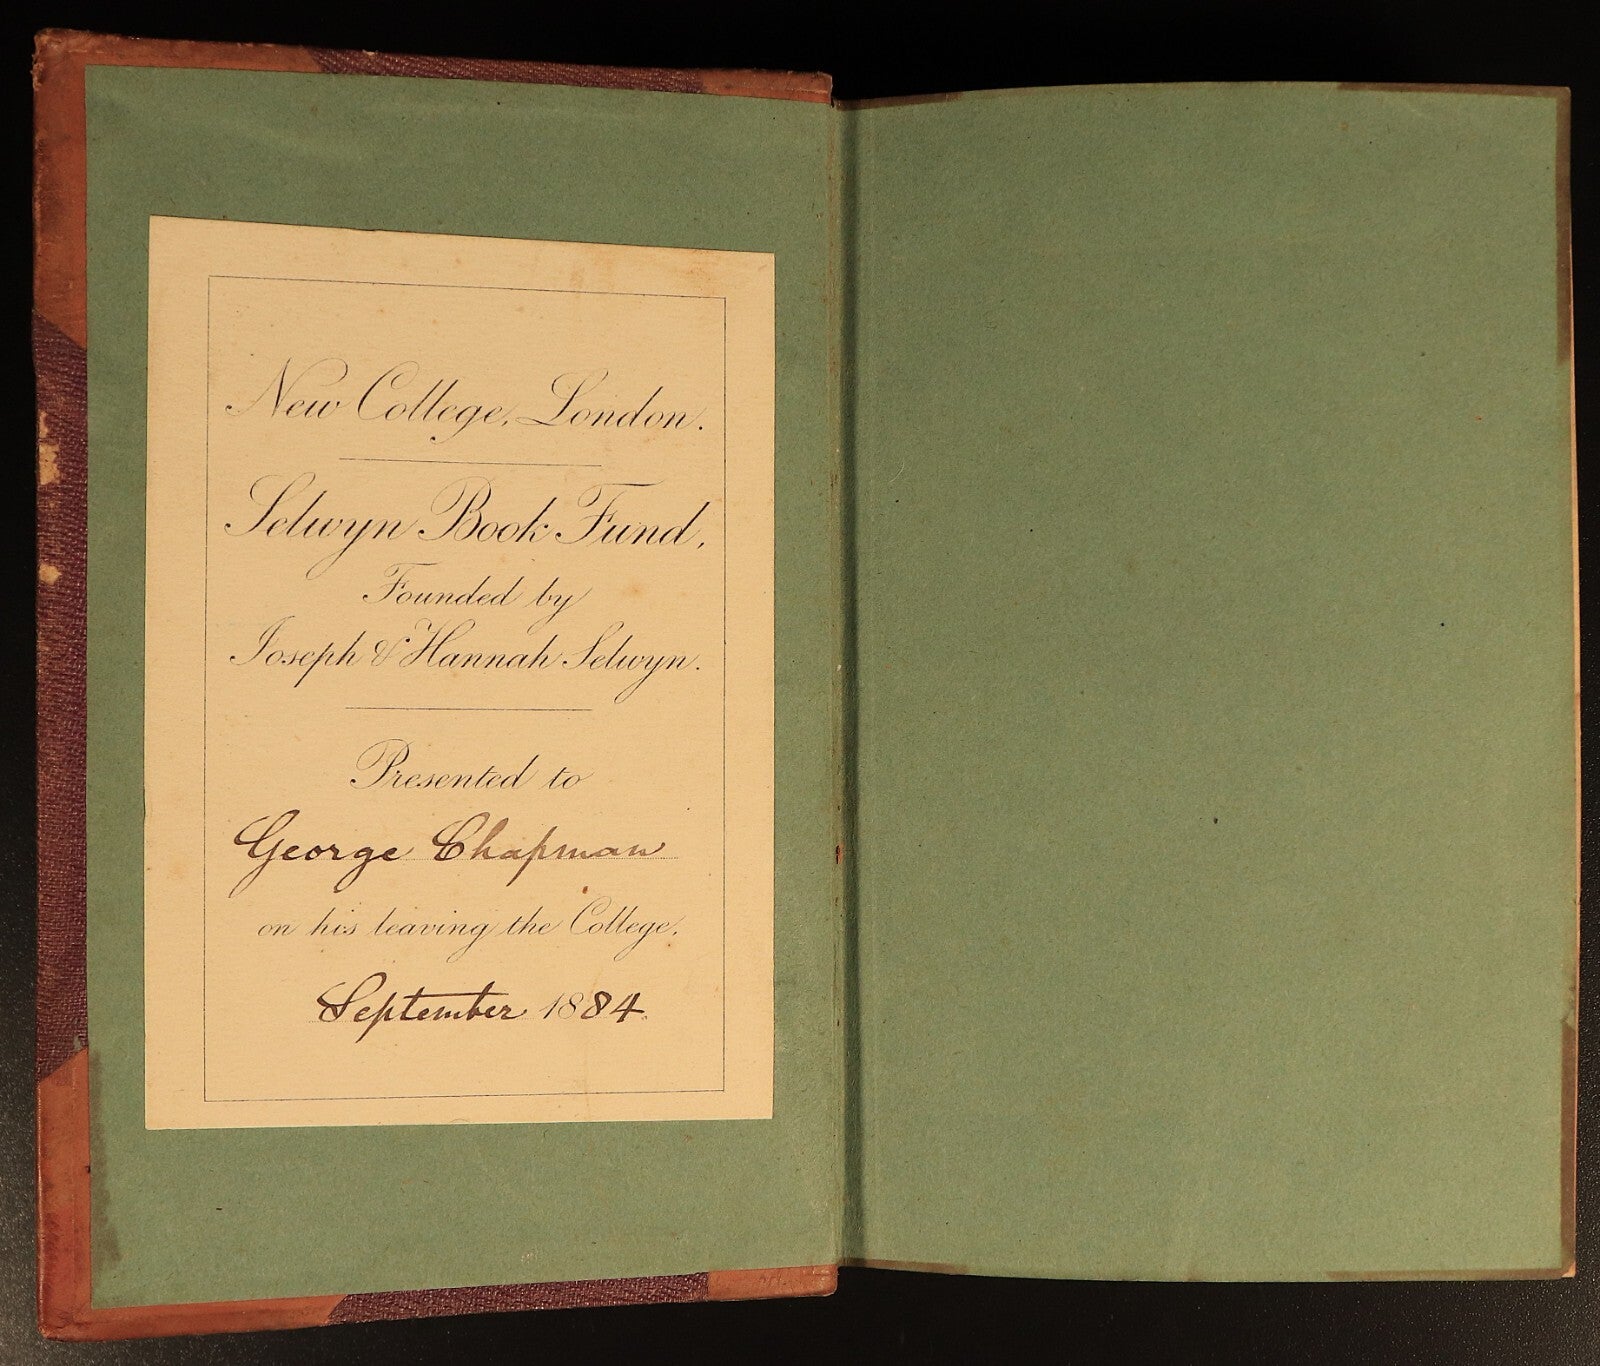 New College, London.
Selwyn Book Fund,
Founded by
Joseph & Hannah Selwyn.
Presented to
George Chapman
on his leaving the College,
September 1884.